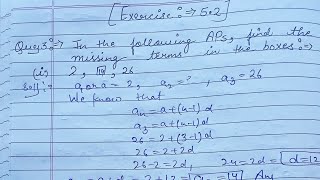 [Exercise:→5.2]
Ques3:→ In the following APs, find the
missing terms in the boxes:→
(i) 2, 14, 26
Soln:→ a, or a = 2, a2 = ?, a3 = 26
We know that
an = a+(n-1)d
a3 = a+(n-1)d
26 = 2+(3-1)d
26 = 2+2d
26-2 = 2d, 24=2d = d=12